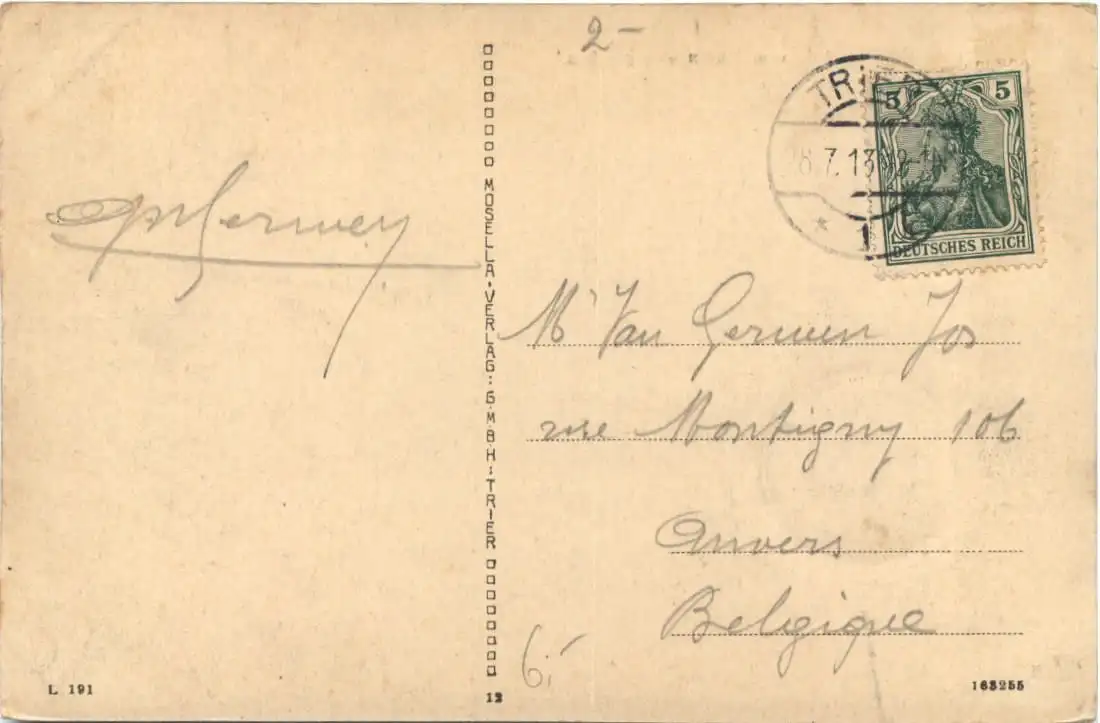 2-
TRIER
5 5
8.7.13
DEUTSCHES REICH
MOSELLA·VERLAG:G·M·B·H:TRIER
Mr Van Gerwen Jos
rue Montigny 106
Anvers
Belgique
6.-
L 191
12
163255